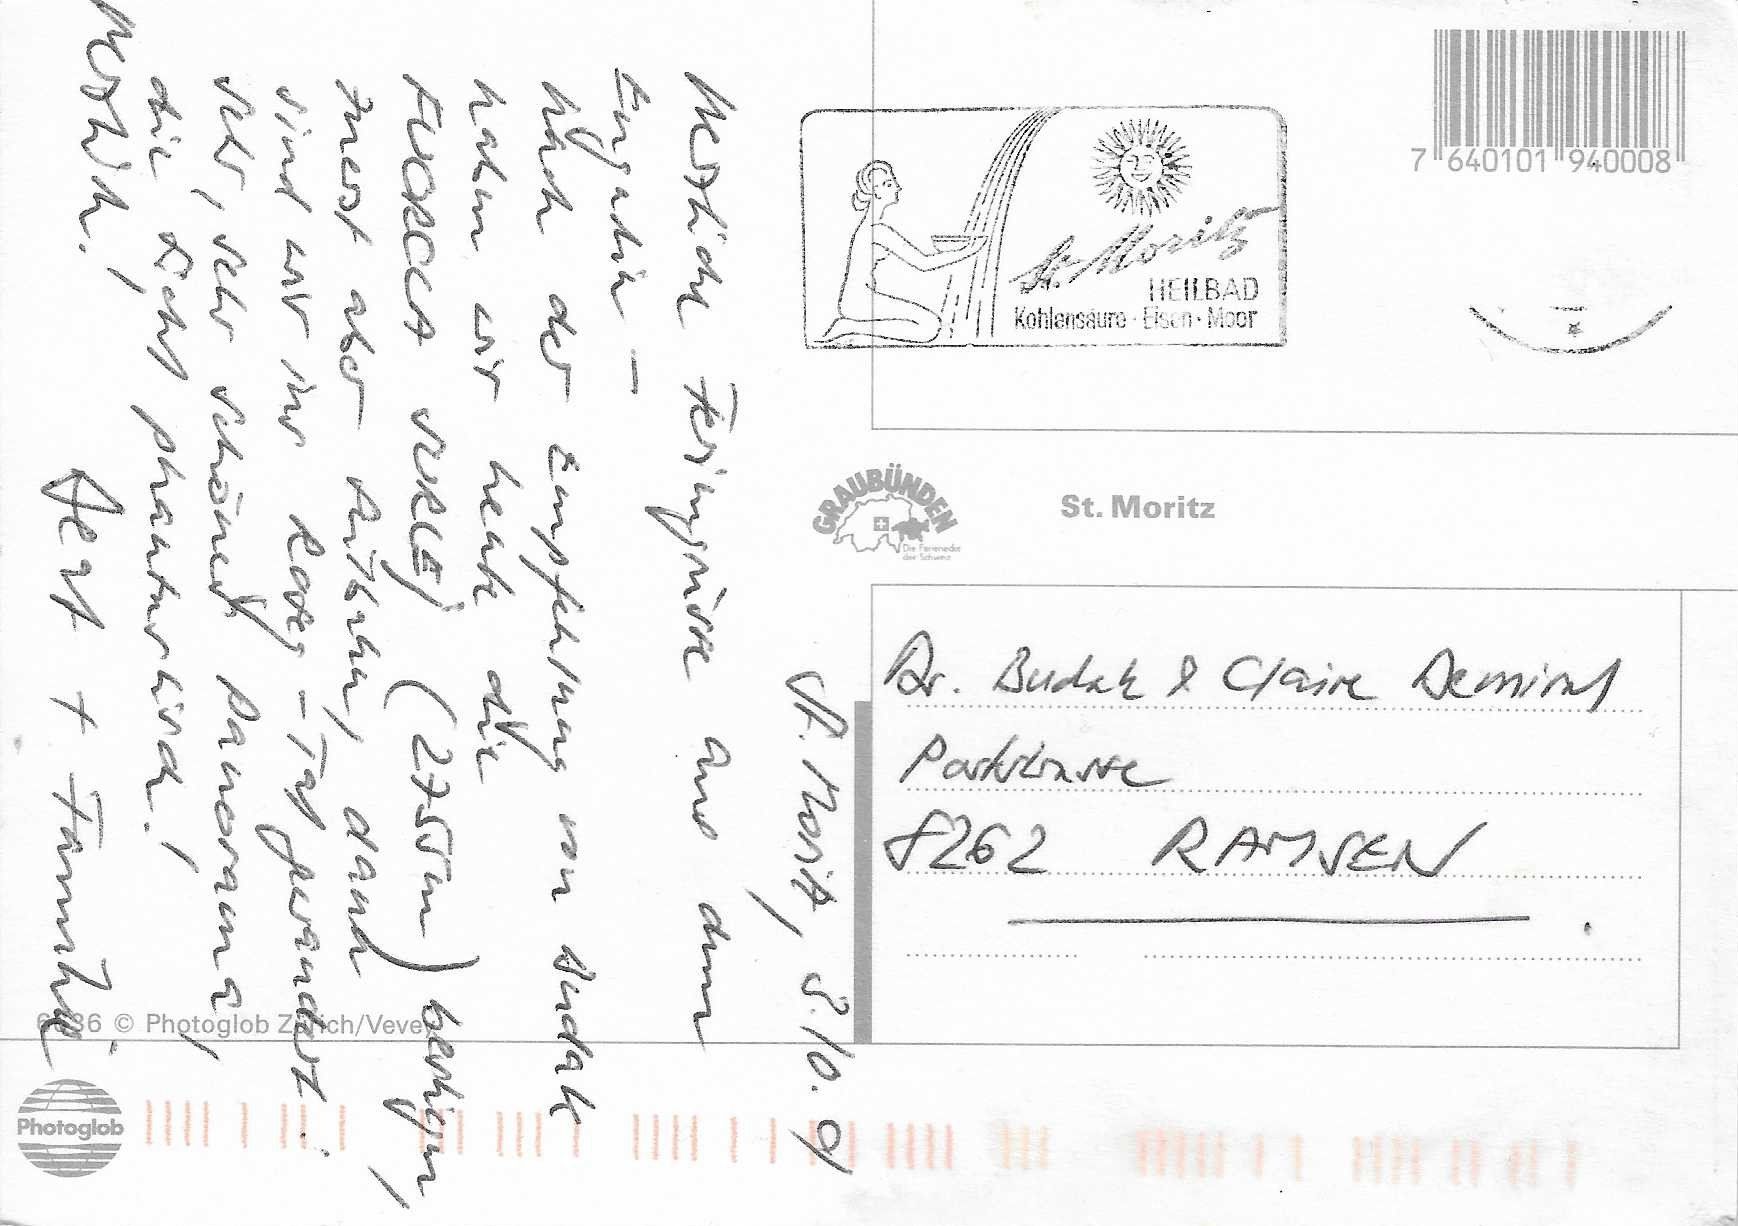 St. Moritz, 8.10.91
Herzliche Feriengrüsse aus dem
Engadin –
Nach der Empfehlung von Budak
haben wir heute die
FUORCLA SURLEJ (2755m) bestiegen,
zuerst aber Luftbahn, dann
sind wir ins Roseg-Tal gewandert.
Sehr, sehr schönes Panorama,
die Sicht phantastisch!
Herzlich!
+ Familie
7 640101 940008
St. Moritz
HEILBAD
Kohlensäure · Eisen · Moor
GRAUBÜNDEN
Die Ferienecke
der Schweiz
St. Moritz
Dr. Budak & Claire Demiral
Parkstrasse
8262 RAMSEN
© Photoglob Zürich/Vevey
Photoglob